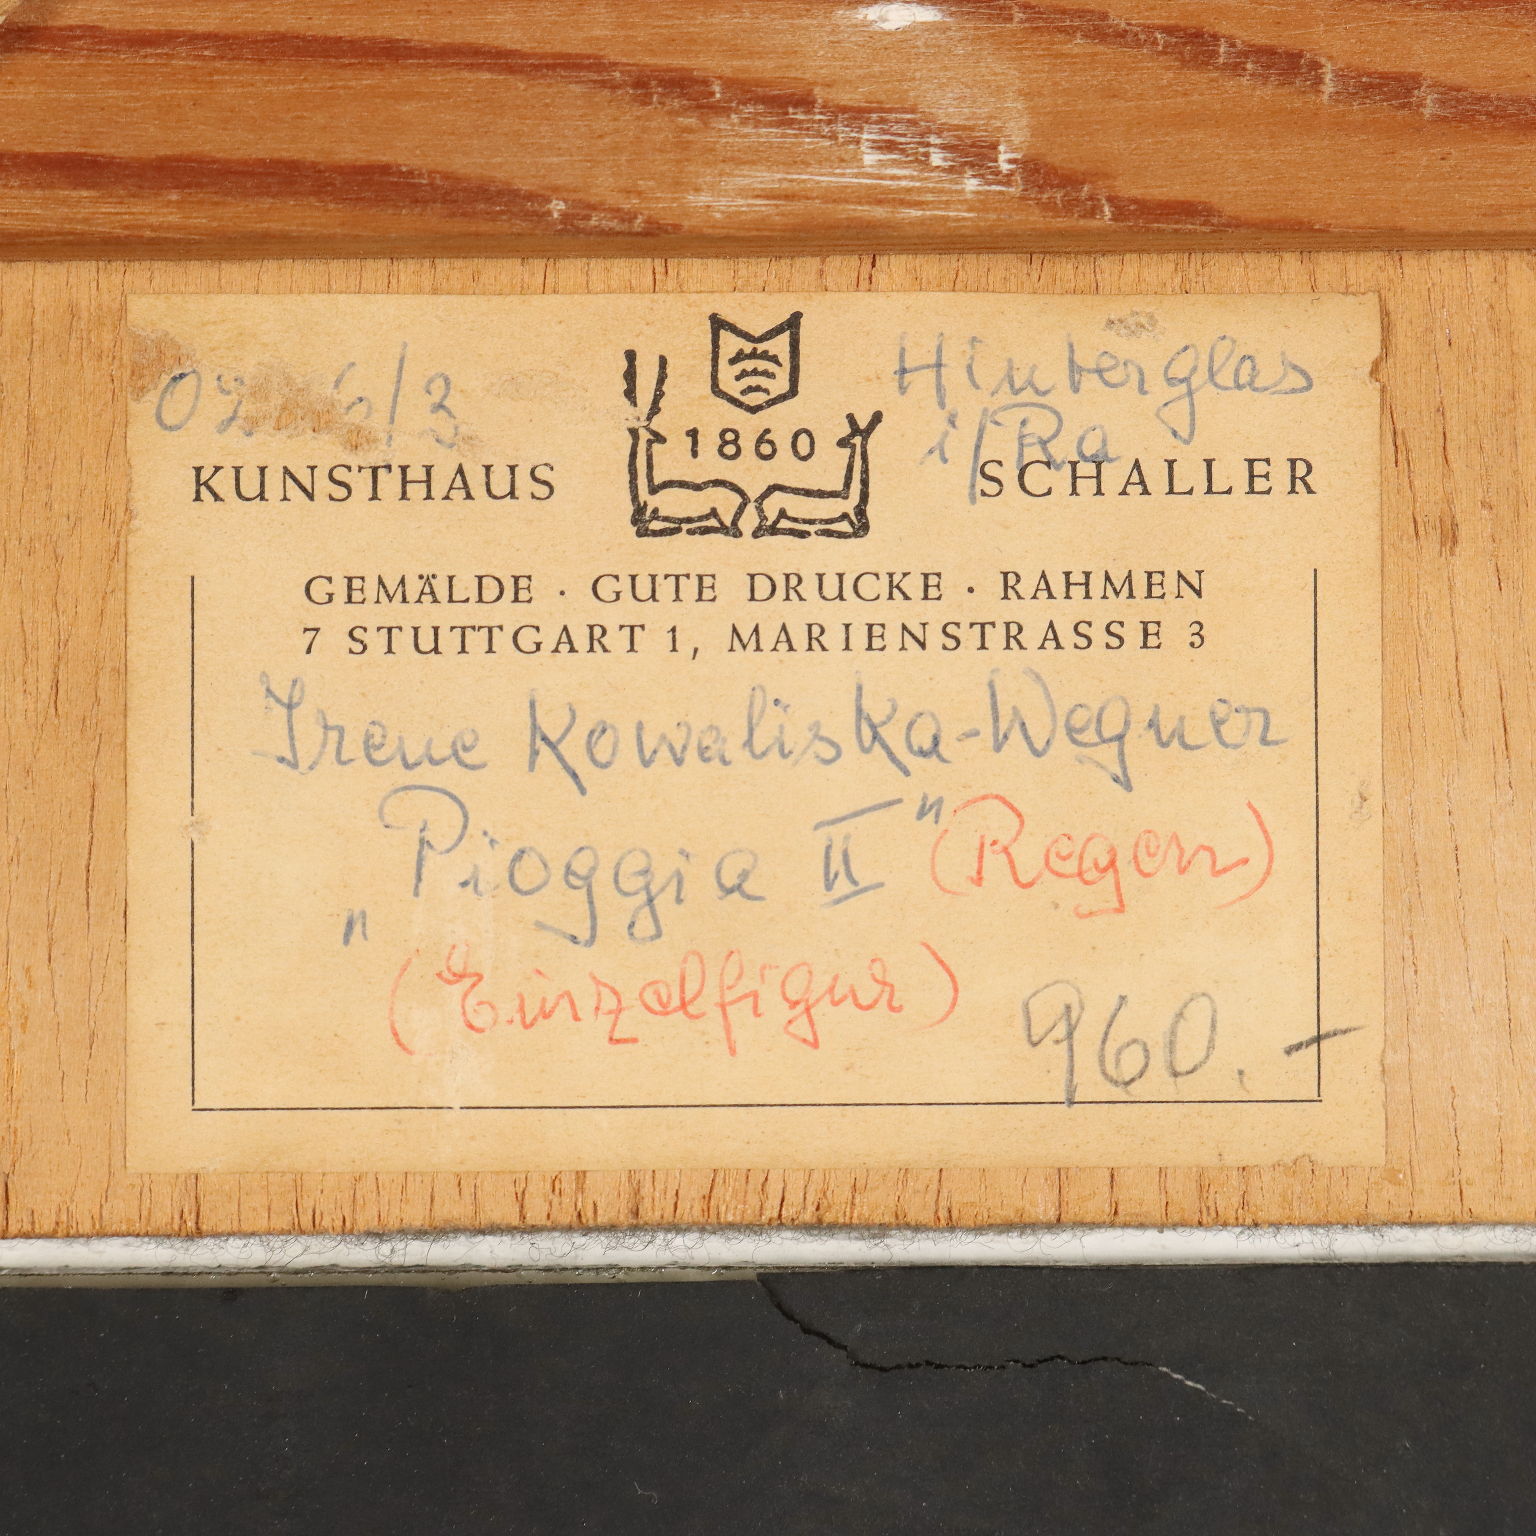 Hinterglas
i/Ra
1860
KUNSTHAUS SCHALLER
GEMÄLDE · GUTE DRUCKE · RAHMEN
7 STUTTGART 1, MARIENSTRASSE 3
Irene Kowaliska-Wegner
„Pioggia II" (Regen)
(Einzelfigur)
960.-